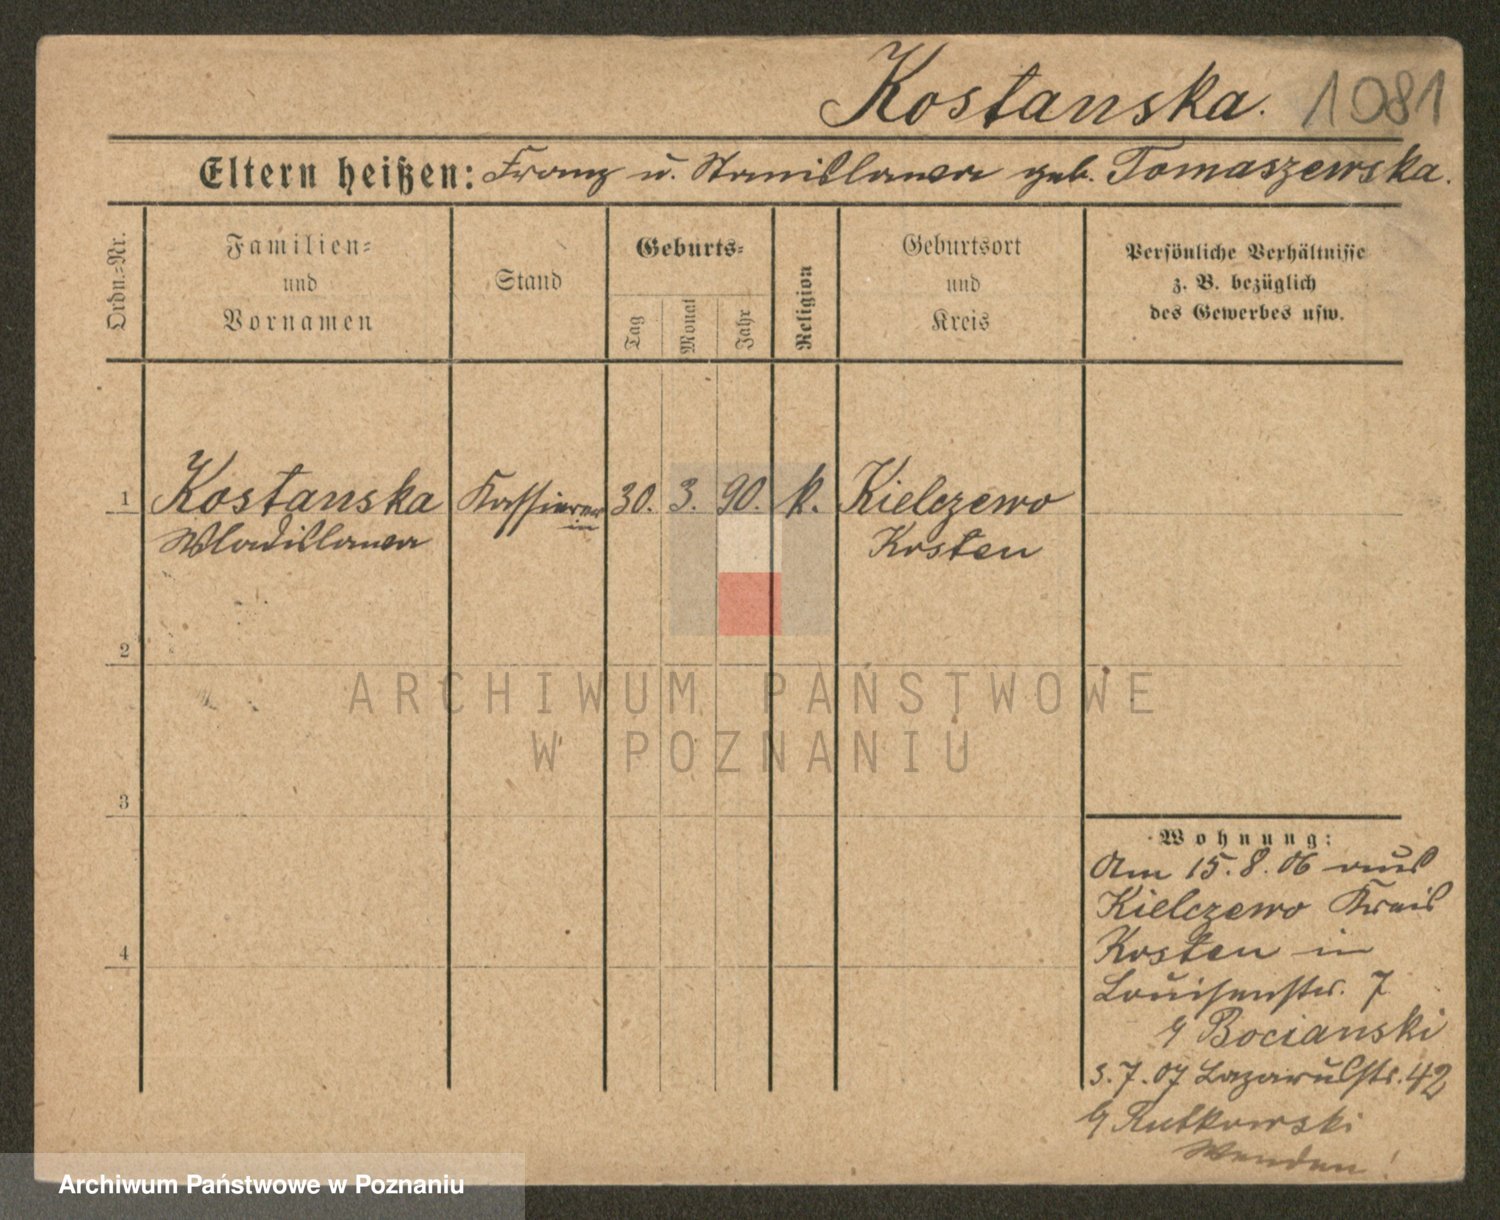 Kostanska. 1081
Eltern heißen: Franz u. Stanislawa geb. Tomaszewska.
Ordn.-Nr.
Familien-
und
Vornamen
Stand
Geburts-
Tag
Monat
Jahr
Religion
Geburtsort
und
Kreis
Persönliche Verhältnisse
z. B. bezüglich
des Gewerbes usw.
1 Kostanska Kassierer 30. 3. 90. k. Kielczewo
in
Wladislawa Kosten
2
ARCHIWUM PAŃSTWOWE
W POZNANIU
3
Wohnung:
Am 15.8.06 aus
Kielczewo Kreis
4
Kosten in
Louisenstr. 7
Bocianski
3.7.07 Lazarusstr. 42
Rutkowski
Wenden!
Archiwum Państwowe w Poznaniu